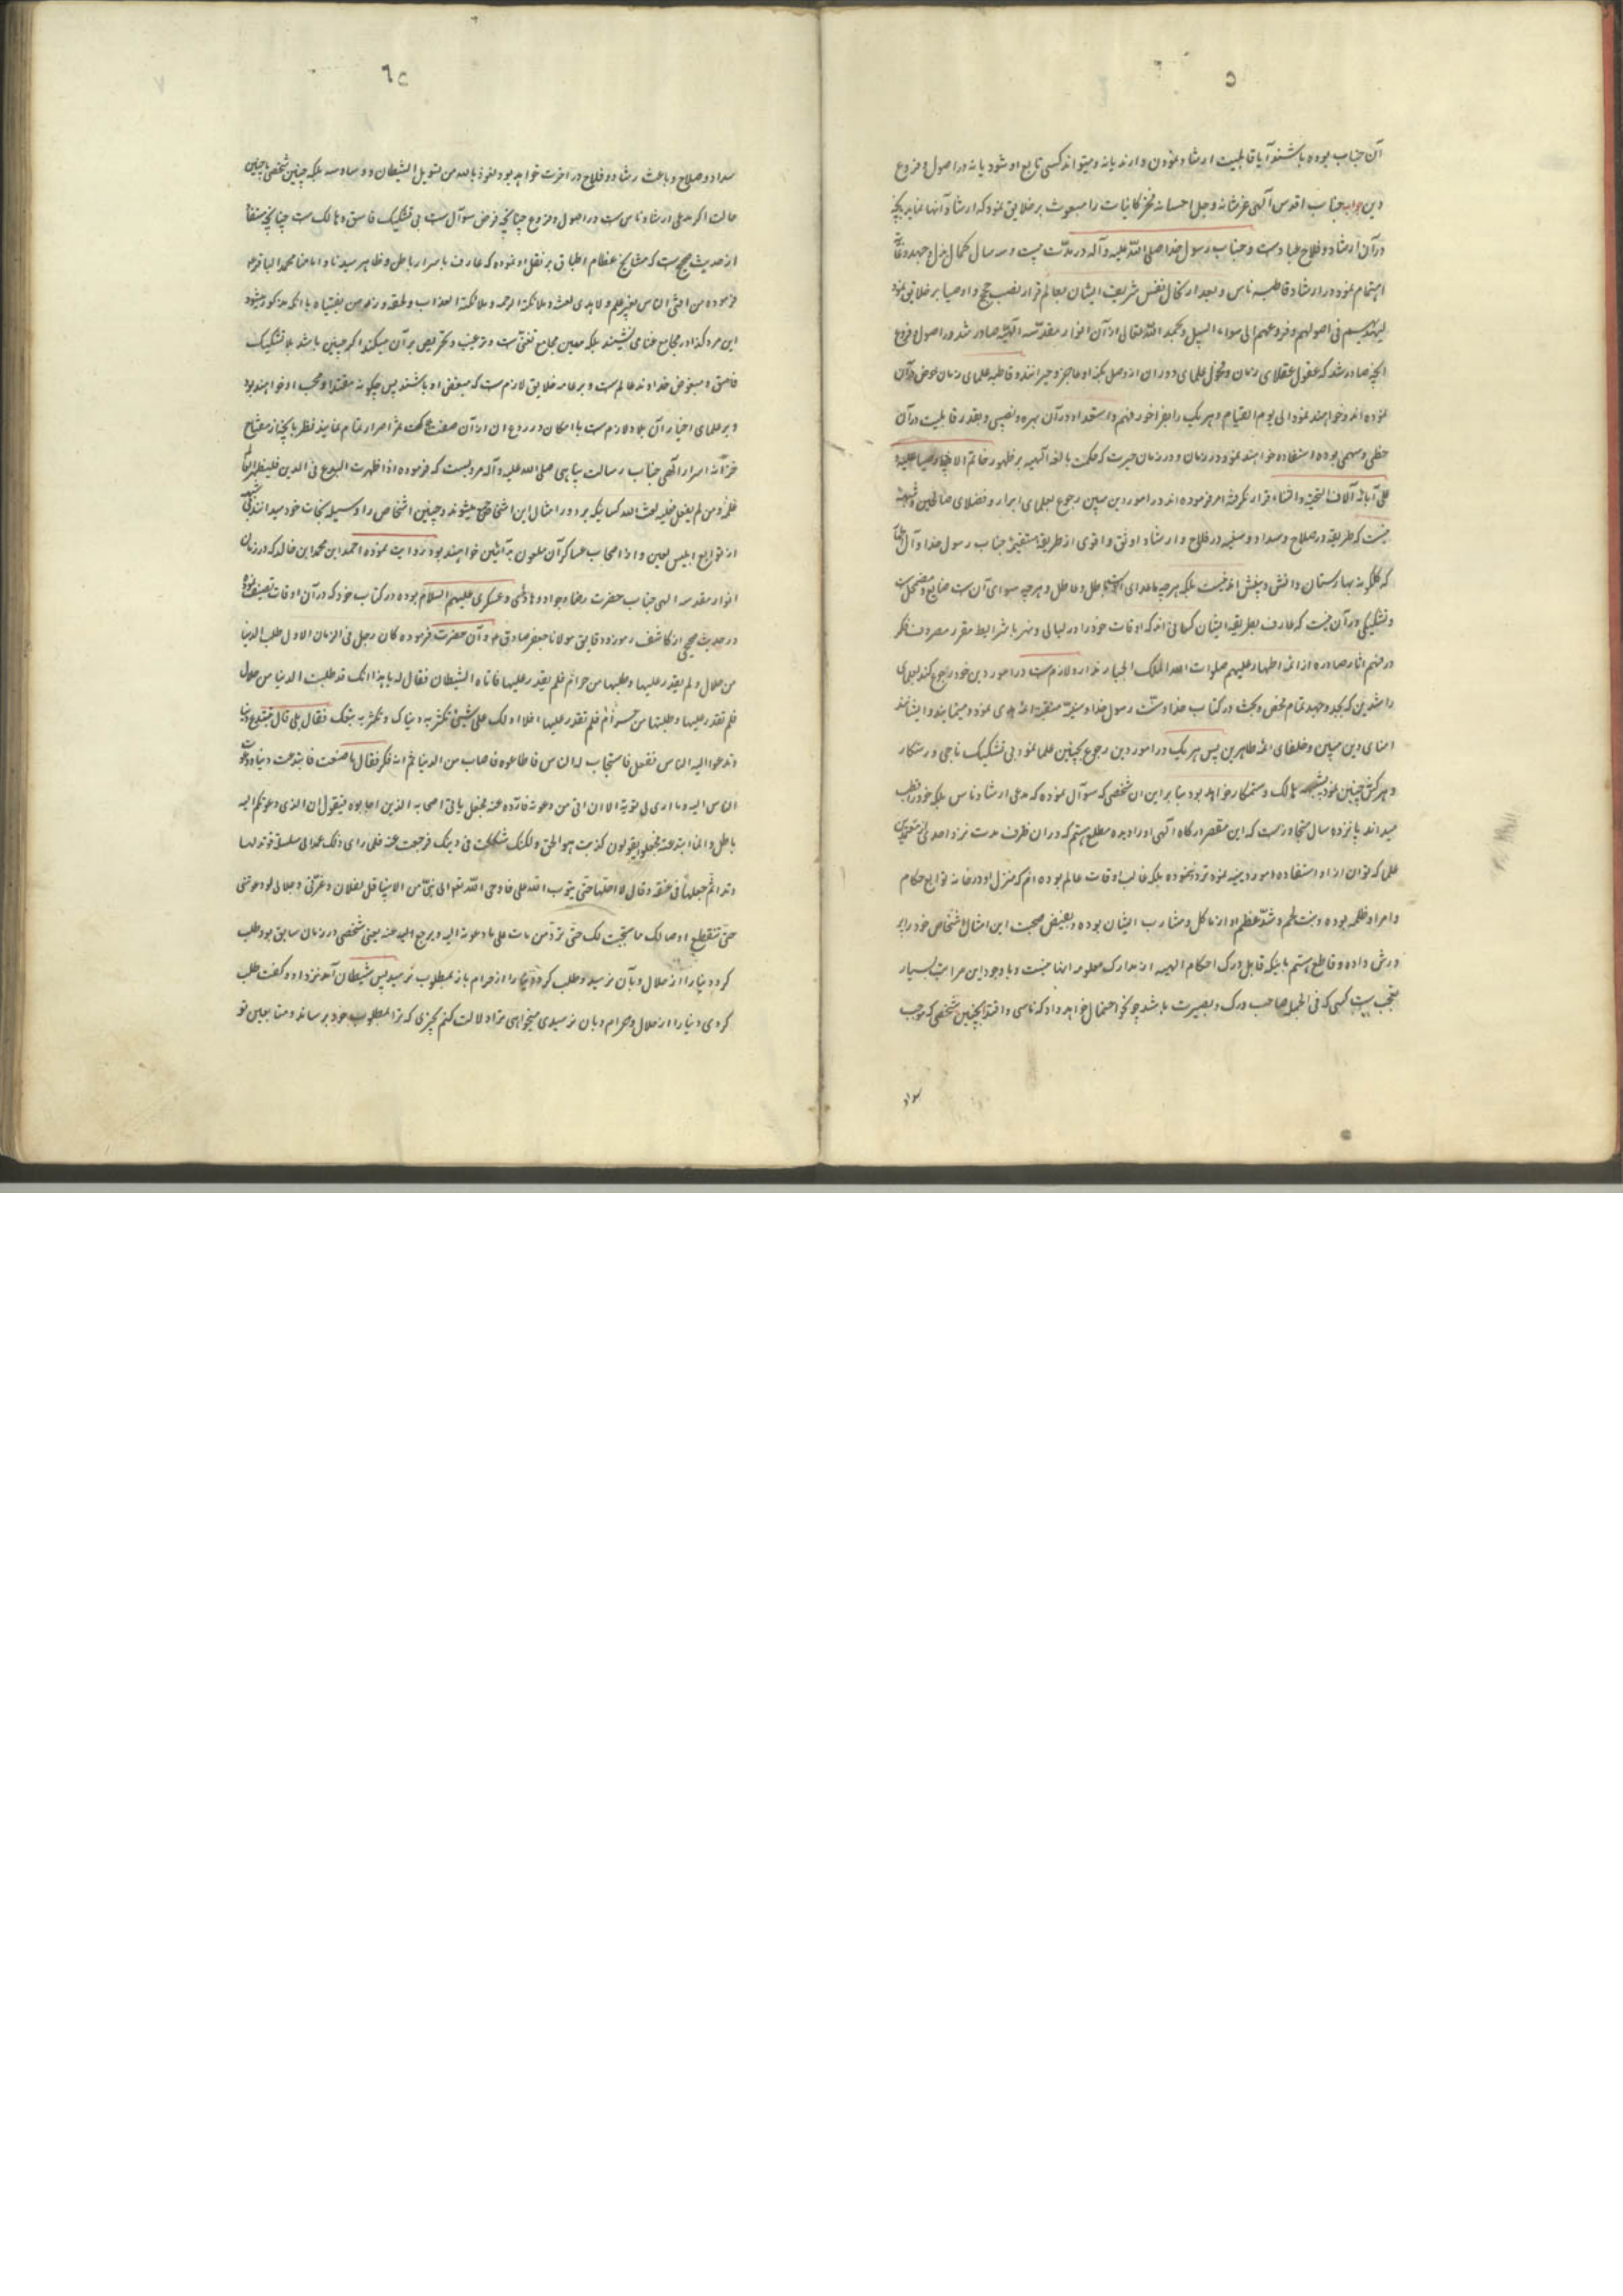 ۵
آن جناب بوده باشند آیا قابلیت ارشاد نمودن دارند یا نه و میتواند کسی تابع او شود یا نه در اصول و فروع
دین جواب جناب اقدس آلهی عز شانه و جل احسانه فخر کاینات را مبعوث بر خلایق نمود که ارشاد آنها نماید بآنچه
در آن ارشاد و فلاح عباد است و جناب رسول خدا صلی الله علیه و آله در مدت بیست و سه سال کمال بذل و جهد و غایت
اهتمام نمود در ارشاد قاطبه ناس و بعد از ارتحال نفس شریف ایشان بعالم قرار نصب حجج و اوصیا بر خلایق نمود
لیهدیهم فی اصولهم و فروعهم الی سواء السبیل و بحمد الله تعالی از آن انوار مقدسه آلهیه صادر شد در اصول و فروع
آنچه صادر شد که عقول عقلای زمان و فحول علمای دوران از وصل بکنه او عاجز و حیرانند و قاطبه علمای زمان خوض در آن
نموده اند و خواهند نمود الی یوم القیام و هر یک را بفراخور فهم و استعداد در آن بهره و نصیبی و بقدر قابلیت در آن
حظی و سهمی بوده استفاده خواهند نمود و در زمان حیرت که حکمت بالغه آلهیه بر ظهور خاتم الاوصیا علیه و
علی آبائه آلاف التحیة والثناء قرار نگرفته امر فرموده اند در امور دین مبین رجوع بعلمای ابرار و فضلای صالحین و شبهه
نیست که طریقه در صلاح و سداد و سفینه در فلاح و ارشاد اوثق و اقوی از طریقه مستقیمه جناب رسول خدا و آل
که گلگونه بهارستان دانش و بینش اند نیست بلکه هر چه ماعدای آنست باطل و عاطل و هر چه سوای آن است ضایع و مضمحل است
و تشکیکی در آن نیست که عارف بطریقه ایشان کسانی اند که اوقات خود را در لیالی و نهر با شرایط مقرر مصروف تفکر
در فهم اثار صادره از ائمه اطهار علیهم صلوات الله الملک الجبار ندارد لازم است در امور دین خود رجوع کند بعلمای
راشدین که بجد و جهد تمام فحص و بحث در کتاب خدا و سنت رسول خدا و سفینه منقبه ائمه هدی نموده و مینمایند و ایشانند
امنای دین مبین و خلفای ائمه طاهرین پس هر یک در امور دین رجوع بچنین علما نمود بی تشکیک ناجی و رستکار
و هر کس چنین نمود هالک و ستمکار خواهد بود بنا بر این ان شخصی که سوآل نموده که مدعی ارشاد ناس بلکه خود را قطب
میداند پانزده سال متجاوز است که این مقصر درکاه آلهی او را دیده مطلع هستم که در ان ظرف مدت نزد احدی از معتمدین
علمی که توان از او استفاده امور دینیه نمود تردد ننموده بلکه غالب اوقات عالم بوده ام که منزل او در خانه توابع حکام
و امراء ظلمه بوده و نبت لحم و شد عظم او از مآکل و مشارب ایشان بوده و بفیض صحبت این امثال اشخاص خود را پر
ورش داده و قاطع هستم باینکه قابل درک احکام الهیه از مدارک معلومه انها نیست و با وجود این مراتب بسیار
متعجب است کسی که فی الجمله صاحب درک و بصیرت باشد چونکه احتمال خواهد داد که تاسی و اقتدا بچنین شخصی که موجب
سداد
٦
سداد و صلاح و باعث رشاد و فلاح در اخرت خواهد بود نعوذ بالله من تسویل الشیطان و وساوسه بلکه چنین شخص با چنین
حالت اکر مدعی ارشاد ناس است در اصول و فروع چنانچه فرض سوآل است بی تشکیک فاسق و هالک است چنانچه مستفاد
از حدیث صحیح است که مشایخ عظام اطباق بر نقل او نموده که عارف باسرار باطن و ظاهر سیدنا و امامنا محمد الباقر
فرموده من افتی الناس بغیر علم ولا هدی لعنته ملائکة الرحمه و ملائکة العذاب و لحقه وزر من عمل بفتیاه با انکه مذکور میشود
این مرد که در مجامع غنا می نشیند بلکه معین مجامع تغنی است و ترغیب و تحریص بر آن میکند اکر چنین باشد بلا تشکیک
فاسق و مبغوض خداوند عالم است و بر عامه خلایق لازم است که مبغض او باشند پس چکونه مقتدا و محب او خواهند بود
و بر علمای اخیار آن بلاد لازم است با امکان در ردع ان از آن صفت اصرار تمام نمایند نظر بآنچه از مفتاح
خزانه اسرار الهی جناب رسالت پناهی صلی الله علیه و آله مرویست که فرموده اذا ظهرت البدع فی الدین فلیظهر العالم
علمه و من لم یفعل فعلیه لعنة الله کسانیکه بر دور امثال این اشخاص جمع میشوند و چنین اشخاص را وسیله نجات خود میدانند
از توابع ابلیس لعین و از اصحاب عساکر آن ملعون بد آئین خواهند بود روایت نموده احمد ابن محمد ابن خالد که در زمان
انوار مقدسه الهی جناب حضرت رضا و جواد و هادی و عسکری علیهم السلام بوده در کتاب خود که در آن اوقات تصنیف نموده
در حدیث صحیحی از کاشف رموز و دقایق مولانا جعفر صادق و آن حضرت فرموده کان رجل فی الزمان الاول طلب الدنیا
من حلال و لم یقدر علیها و طلبها من حرام فلم یقدر علیها فاتاه الشیطان فقال له یا هذا انک قد طلبت الدنیا من حلال
فلم تقدر علیها و طلبتها من حرام فلم تقدر علیها افلا ادلک علی شیئ تکثر به دنیاک و تکثر به تبعک فقال بلی قال تبتدع دینا
و تدعوا الیه الناس ففعل فاستجاب له الناس فاطاعوه فاصاب من الدنیا ثم انه فکر فقال ما صنعت فابتدعت دینا و دعوت
الناس الیه و ما اری لی توبة الا ان اتی من دعوته فارده عنه فجعل یاتی اصحابه الذین اجابوه فیقول ان الذی دعوتکم الیه
باطل و انما ابتدعته فجعلوا یقولون کذبت هو الحق و لکنک شککت فی دینک فرجعت عنه فلما رای ذلک عمد الی سلسلة فوتد لها
وتدا ثم جعلها فی عنقه و قال لا احلها حتی یتوب الله علی فاوحی الله تعالی الی نبی من الانبیا قل لفلان و عزتی و جلالی لو دعوتنی
حتی تنقطع اوصالک ما استجبت لک حتی ترد من مات علی ما دعوته الیه و یرجع الیه عنه یعنی شخصی در زمان سابق بود طلب
کرد دنیا را از حلال و بآن نرسید و طلب کرد دنیا را از حرام باز بمطلوب نرسید پس شیطان آمد نزد او و کفت طلب
کردی دنیا را از حلال و حرام و بان نرسیدی میخواهی ترا دلالت کنم بچیزی که ترا بمطلوب خود برساند و متابعان تو